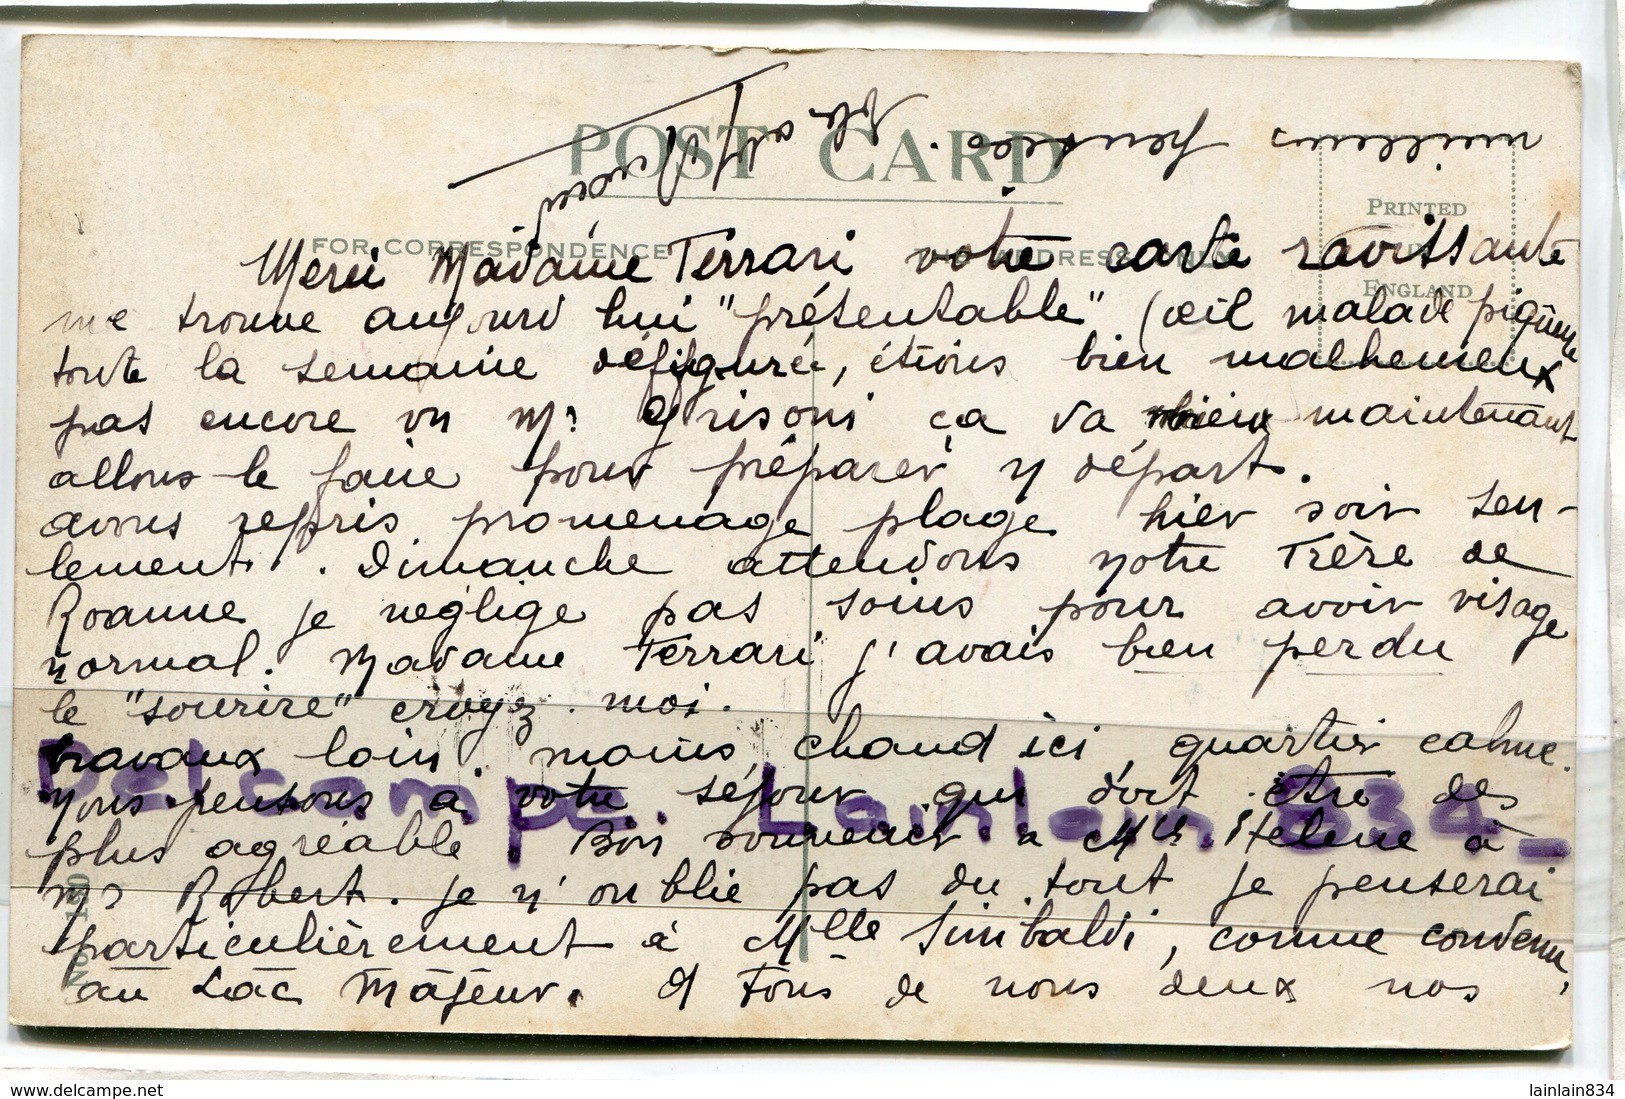 POST CARD
FOR CORRESPONDENCE
PRINTED
ENGLAND
Merci Madame Ferrari votre carte ravissante
me trouve aujourd'hui "présentable" (œil malade piqûre
toute la semaine défiguré, étions bien malheureux
pas encore vu Mr Grisoni ça va mieux maintenant
allons le faire pour préparer départ.
avons repris promenage plage hier soir seu-
lement. Dimanche attendons notre frère de
Roanne je néglige pas soins pour avoir visage
normal. Madame Ferrari j'avais bien perdu
le "sourire" croyez-moi.
travaux loin. moins chaud ici, quartier calme.
nous pensons à votre séjour qui doit être des
plus agréable. Bon souvenir à Mlle Helene à
Mr Robert. je n'oublie pas du tout je penserai
particulièrement à Mlle Simbaldi, comme convenu,
au Lac Majeur. A tous de nous deux nos
meilleures pensées.
Delcampe Lainlain 834
© www.delcampe.net
lainlain834